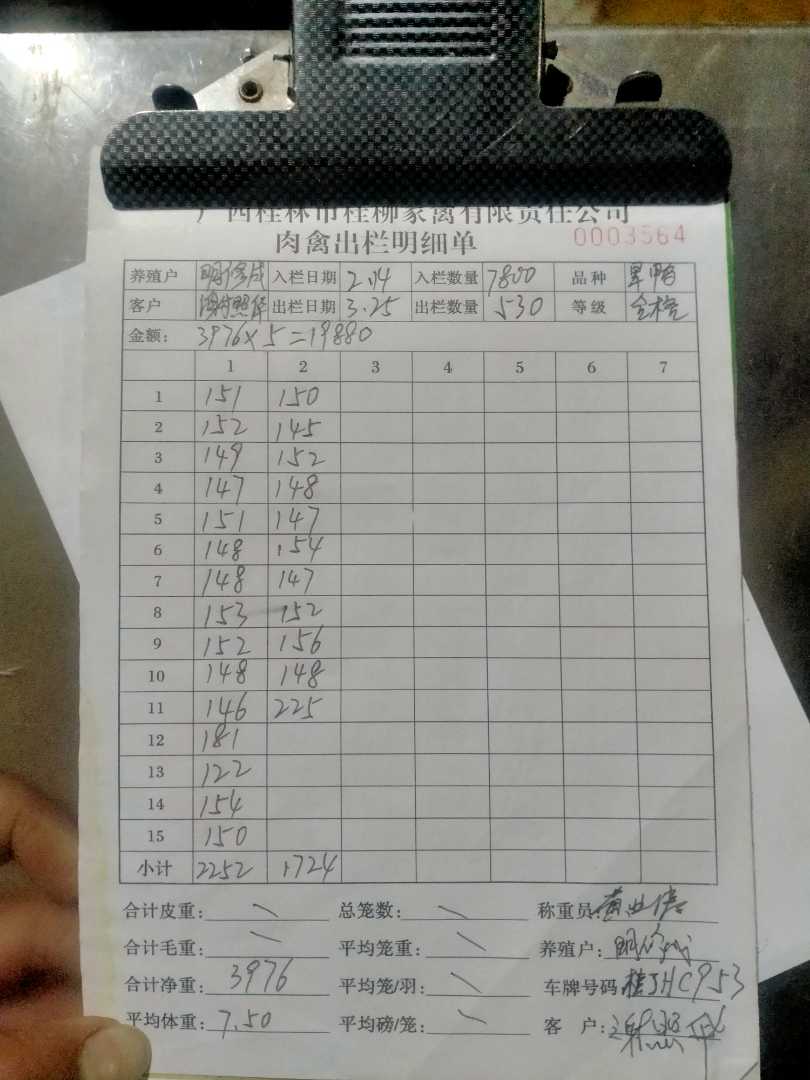 广西桂林市桂柳家禽有限责任公司
肉禽出栏明细单 0003564
养殖户 入栏日期 2.14 入栏数量 7800 品种
客户 出栏日期 3.25 出栏数量 530 等级
金额: 3976×5=19880
1 2 3 4 5 6 7
1 151 150
2 152 145
3 149 152
4 147 148
5 151 147
6 148 154
7 148 147
8 153 152
9 152 156
10 148 148
11 146 225
12 181
13 122
14 154
15 150
小计 2252 1724
合计皮重: 总笼数: 称重员:
合计毛重: 平均笼重: 养殖户:
合计净重: 3976 平均笼/羽: 车牌号码: 桂JHC953
平均体重: 7.50 平均磅/笼: 客 户: